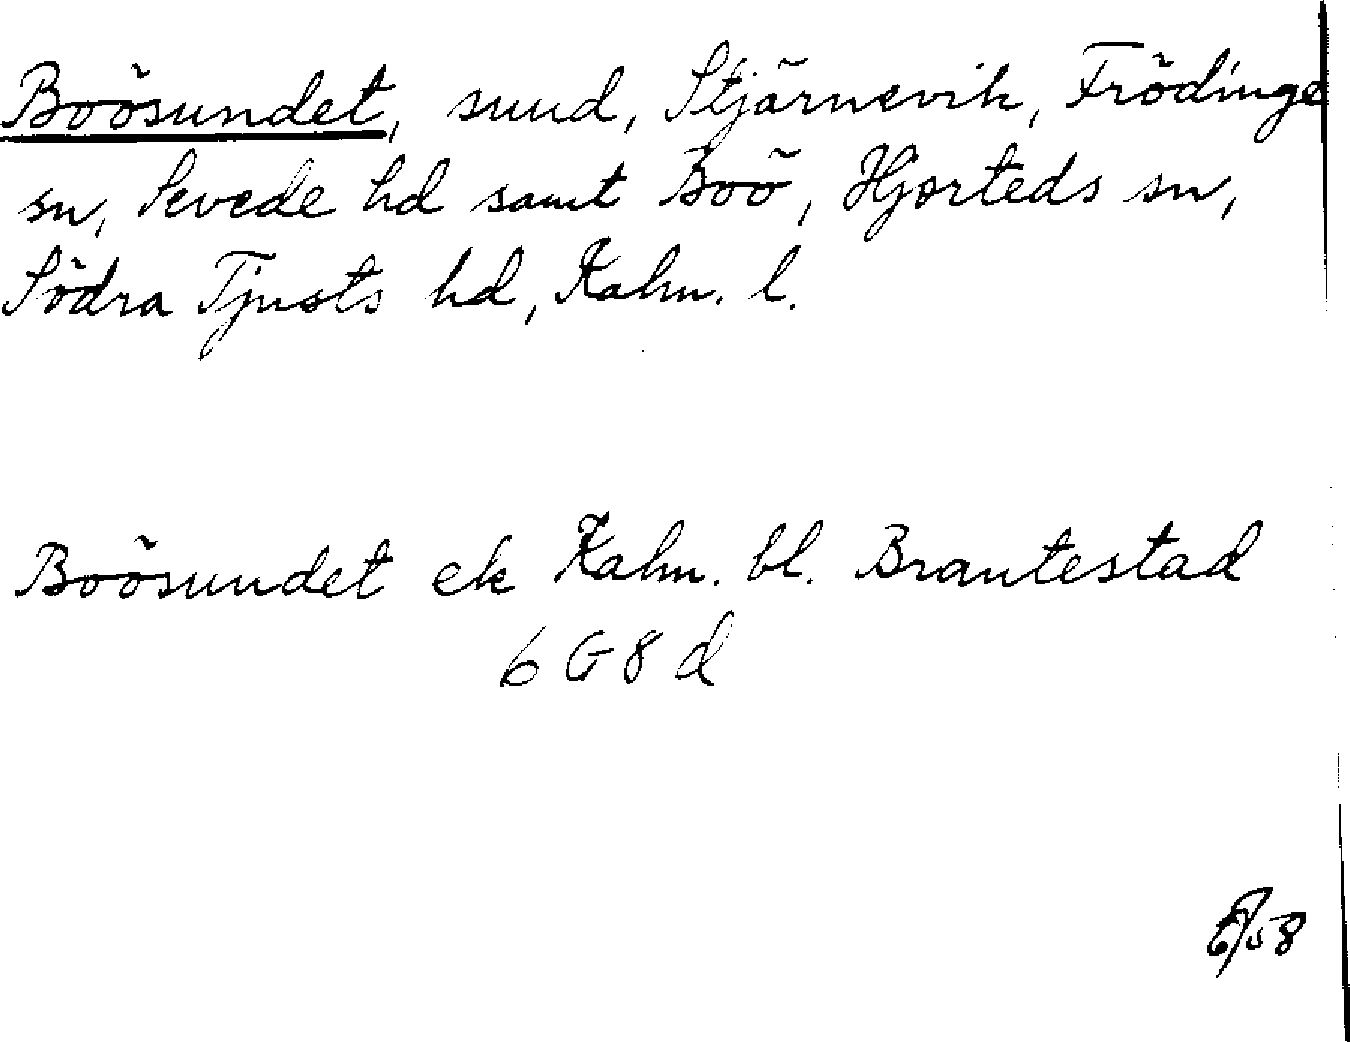 Boösundet, sund, Stjärnevik, Frödinge
sn, Sevede hd samt Boö, Hjorteds sn,
Södra Tjusts hd, Kalm. l.
Boösundet ek Kalm. bl. Brantestad
6 G 8 d